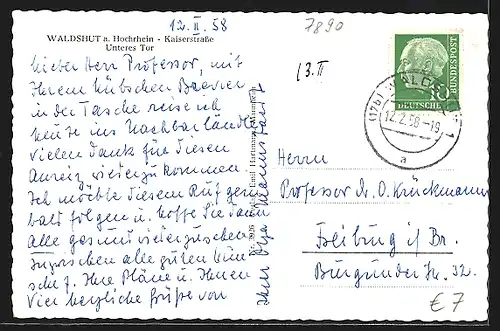 12.II.58
7890
WALDSHUT a. Hochrhein - Kaiserstraße
Unteres Tor
13.II
Lieber Herr Professor, mit
Ihrem hübschen
in der Tasche reise ich
heute ins Nachbarländle
vielen Dank für diesen
Anreiz wiederzukommen.
Ich möchte diesem Ruf gern
bald folgen u. hoffe Sie dann
alle gesund wiederzusehen.
Inzwischen alle guten Wün
sche f. Ihre Pläne u. Ihnen
Vier herzliche Grüße von
Ihrer Olga
DEUTSCHE
BUNDESPOST
10
(17b) WALDSHUT 1
12.2.58-19
a
Herrn
Professor Dr. O. Kruckmann
Freiburg i/Br.
Burgunder Str. 32.
€ 7